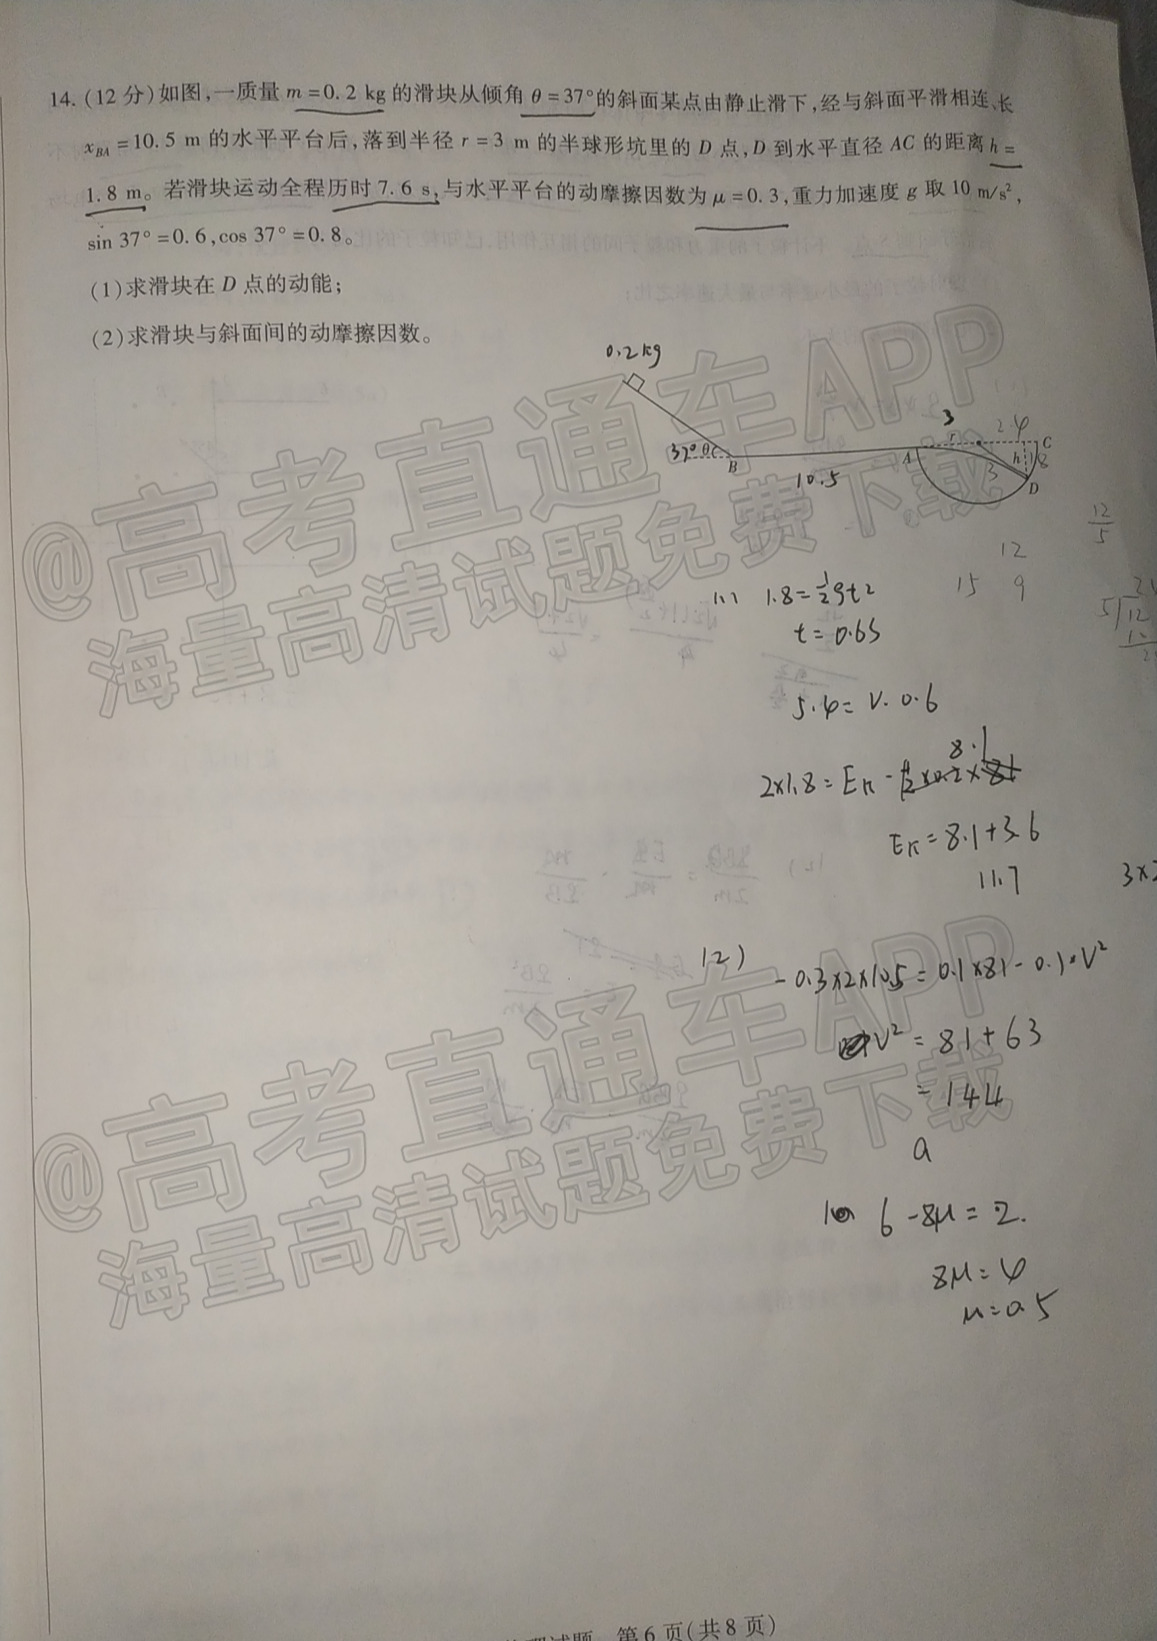 14.(12分)如图,一质量m=0.2 kg的滑块从倾角θ=37°的斜面某点由静止滑下,经与斜面平滑相连、长
x_BA=10.5 m的水平平台后,落到半径r=3 m的半球形坑里的D点,D到水平直径AC的距离h=
1.8 m。若滑块运动全程历时7.6 s,与水平平台的动摩擦因数为μ=0.3,重力加速度g取10 m/s²,
sin 37°=0.6,cos 37°=0.8。
(1)求滑块在D点的动能;
(2)求滑块与斜面间的动摩擦因数。
0.2kg
3
2.4
37° θ
B
A
r
C
h
1.8
3
D
10.5
@高考直通车APP
海量高清试题免费下载
12
5
12
15 9
5 12
(1) 1.8=½gt²
t=0.6s
5.4=V·0.6
8.1
2×1.8=Ek-
Ek=8.1+3.6
11.7
3×2
(2) -0.3×2×10.5=0.1×81-0.1·V²
V²=81+63
=144
a
6-8μ=2.
8μ=4
μ=0.5
@高考直通车APP
海量高清试题免费下载
试题 第6页(共8页)